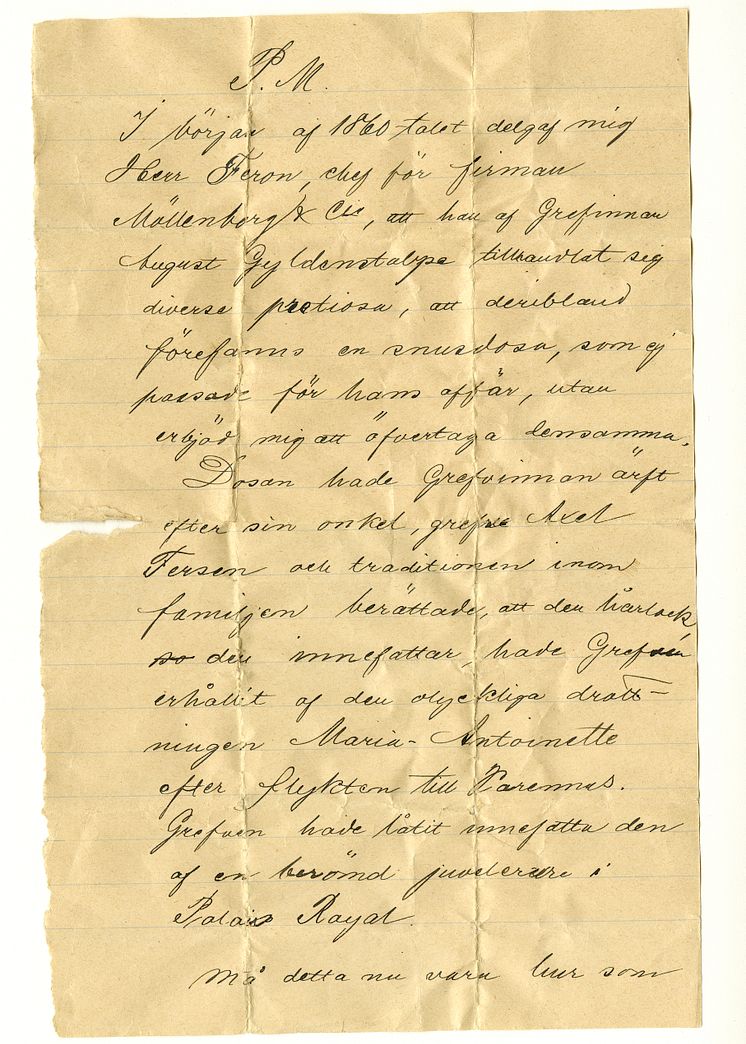 P. M.
I början af 1860 talet delgaf mig
Herr Feron, chef för firman
Möllenborg & Cie, att han af Grefinnan
August Gyldenstolpe tillhandlat sig
diverse pretiosa, att deribland
förefanns en snusdosa, som ej
passade för hans affär, utan
erbjöd mig att öfvertaga densamma.
Dosan hade Grefvinnan ärft
efter sin onkel, grefve Axel
Fersen och traditionen inom
familjen berättade, att den hårlock
den innefattar, hade Grefven
erhållit af den olyckliga drott-
ningen Maria-Antoinette
efter flykten till Varennes.
Grefven hade låtit innefatta den
af en berömd juvelerare i
Palais Royal.
Må detta nu vara hur som